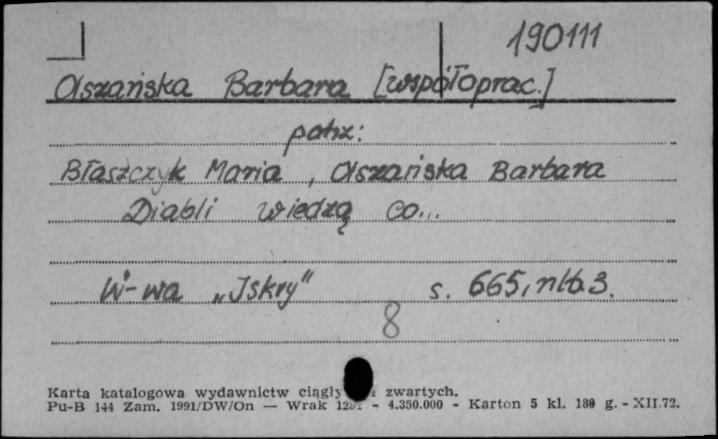 190111
Olszańska Barbara [współoprac.]
patrz:
Błaszczyk Maria, Olszańska Barbara
Diabli wiedzą co...
W-wa „Iskry" s. 665, nlb. 3.
8
Karta katalogowa wydawnictw zwartych.
Pu-B 144 Zam. 1991/DW/On — Wrak - 4.350.000 - Karton 5 kl. 180 g. - XII.72.